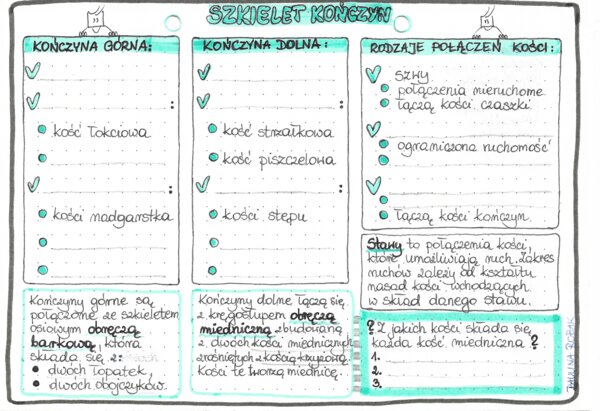 SZKIELET KOŃCZYN
KOŃCZYNA GÓRNA:
:
kość łokciowa
:
kości nadgarstka
Kończyny górne są
połączone ze szkieletem
osiowym obręczą
barkową, która
składa się z:
dwóch łopatek,
dwóch obojczyków.
KOŃCZYNA DOLNA:
:
kość strzałkowa
kość piszczelowa
:
kości stępu
Kończyny dolne łączą się
z kręgosłupem obręczą
miedniczną zbudowaną
z dwóch kości miednicznych
zrośniętych z kością krzyżową.
Kości te tworzą miednicę.
RODZAJE POŁĄCZEŃ KOŚCI:
szwy
połączenia nieruchome
łączą kości czaszki
ograniczona ruchomość
łączą kości kończyn
Stawy to połączenia kości,
które umożliwiają ruch. Zakres
ruchów zależy od kształtu
nasad kości wchodzących
w skład danego stawu.
? Z jakich kości składa się
każda kość miedniczna ?
1.
2.
3.
PAULINA